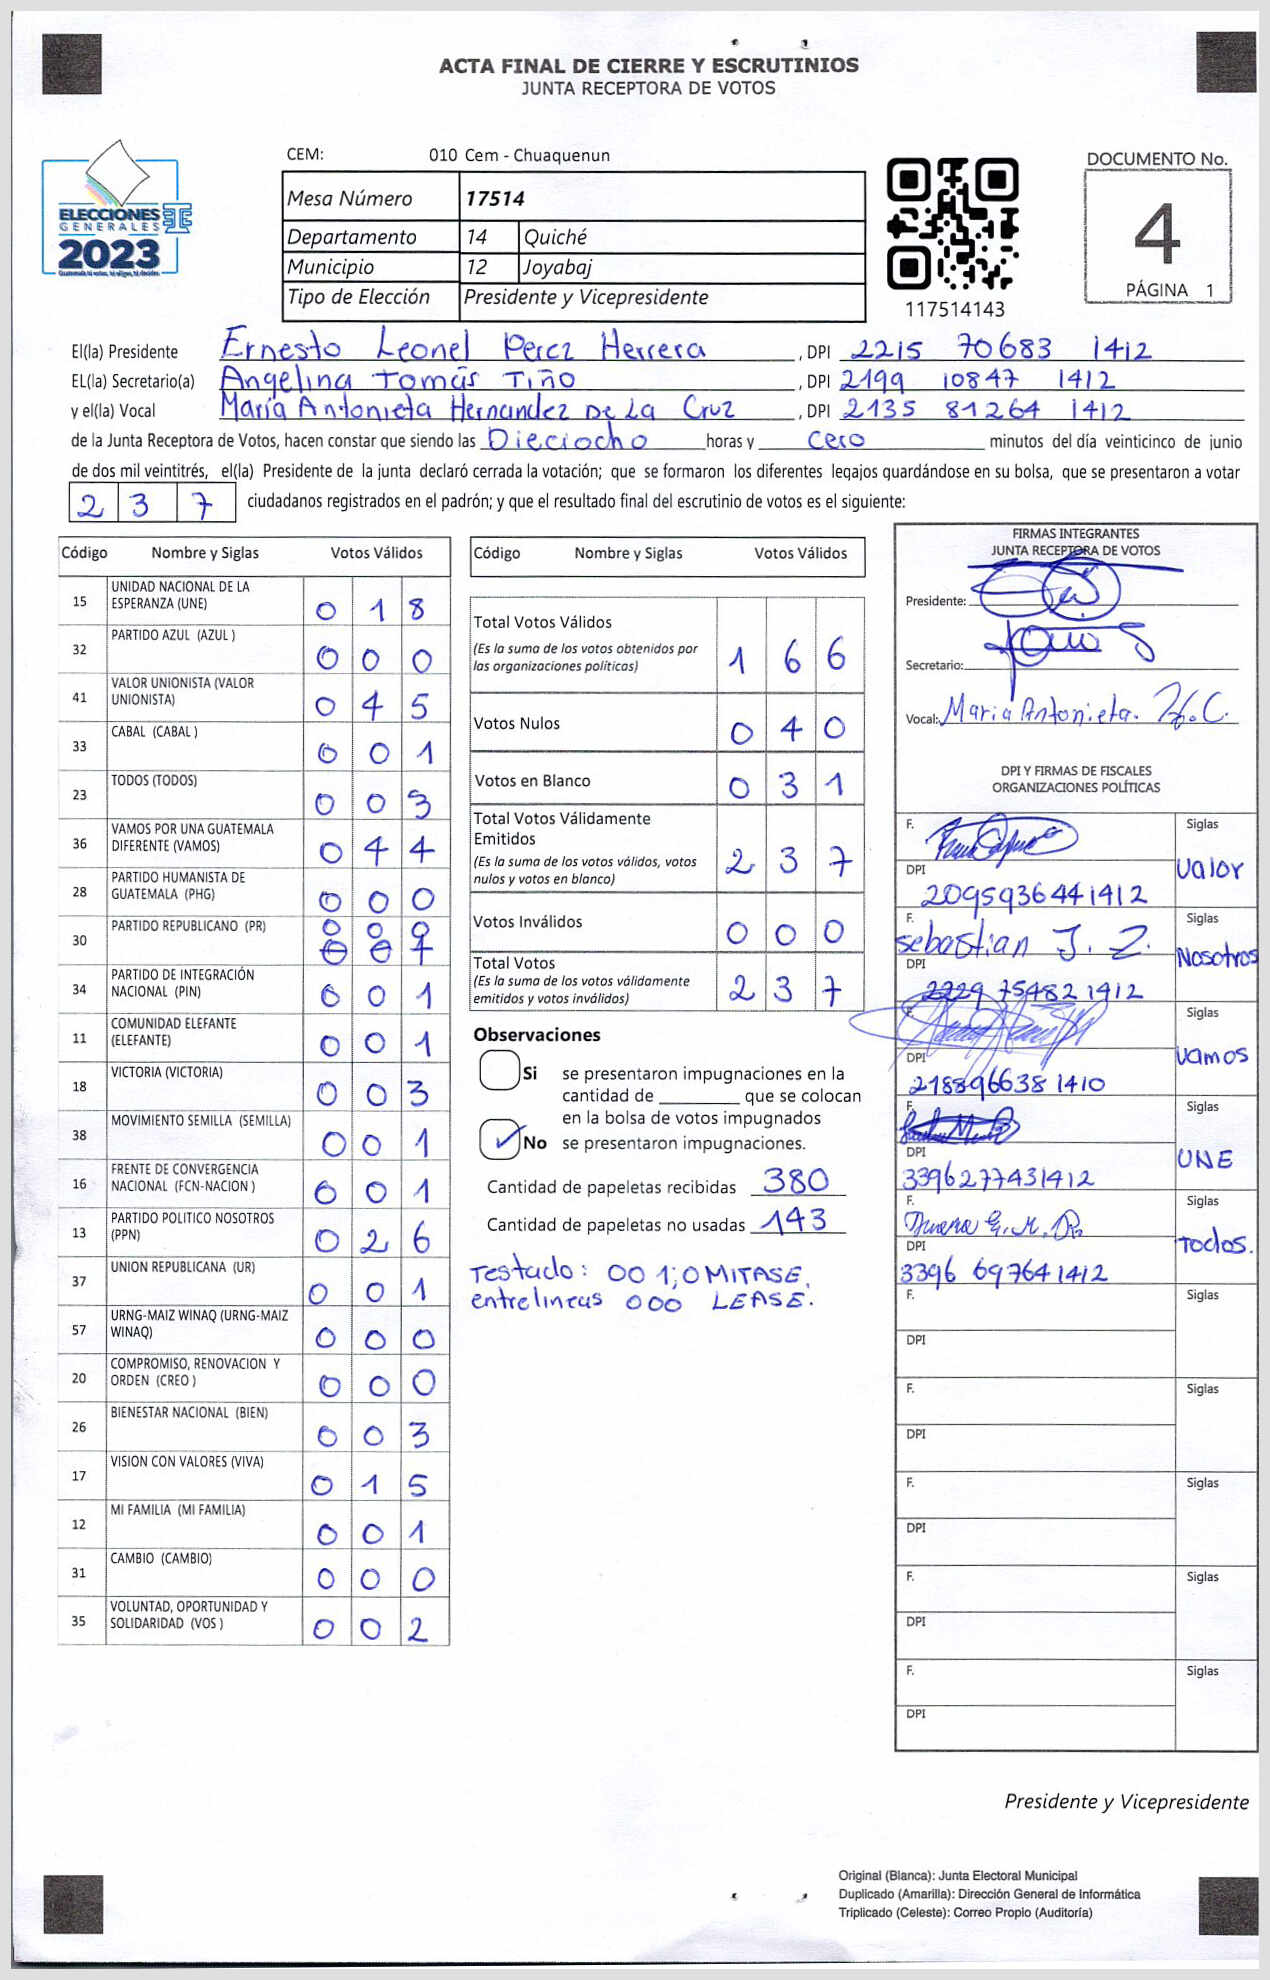 ACTA FINAL DE CIERRE Y ESCRUTINIOS
JUNTA RECEPTORA DE VOTOS
ELECCIONES
GENERALES
2023
CEM: 010 Cem - Chuaquenun
Mesa Número 17514
Departamento 14 Quiché
Municipio 12 Joyabaj
Tipo de Elección Presidente y Vicepresidente
117514143
DOCUMENTO No.
4
PÁGINA 1
El(la) Presidente Ernesto Leonel Perez Herrera, DPI 2215 70683 1412
EL(la) Secretario(a) Angelina Tomás Tiño, DPI 2199 10847 1412
y el(la) Vocal María Antonieta Hernandez De La Cruz, DPI 2135 81264 1412
de la Junta Receptora de Votos, hacen constar que siendo las Dieciocho horas y cero minutos del día veinticinco de junio
de dos mil veintitrés, el(la) Presidente de la junta declaró cerrada la votación; que se formaron los diferentes legajos guardándose en su bolsa, que se presentaron a votar
2 3 7 ciudadanos registrados en el padrón; y que el resultado final del escrutinio de votos es el siguiente:
Código Nombre y Siglas Votos Válidos
15 UNIDAD NACIONAL DE LA ESPERANZA (UNE) 0 1 8
32 PARTIDO AZUL (AZUL ) 0 0 0
41 VALOR UNIONISTA (VALOR UNIONISTA) 0 4 5
33 CABAL (CABAL ) 0 0 1
23 TODOS (TODOS) 0 0 3
36 VAMOS POR UNA GUATEMALA DIFERENTE (VAMOS) 0 4 4
28 PARTIDO HUMANISTA DE GUATEMALA (PHG) 0 0 0
30 PARTIDO REPUBLICANO (PR) 0 0 0
0 0 1
34 PARTIDO DE INTEGRACIÓN NACIONAL (PIN) 0 0 1
11 COMUNIDAD ELEFANTE (ELEFANTE) 0 0 1
18 VICTORIA (VICTORIA) 0 0 3
38 MOVIMIENTO SEMILLA (SEMILLA) 0 0 1
16 FRENTE DE CONVERGENCIA NACIONAL (FCN-NACION ) 0 0 1
13 PARTIDO POLITICO NOSOTROS (PPN) 0 2 6
37 UNION REPUBLICANA (UR) 0 0 1
57 URNG-MAIZ WINAQ (URNG-MAIZ WINAQ) 0 0 0
20 COMPROMISO, RENOVACION Y ORDEN (CREO ) 0 0 0
26 BIENESTAR NACIONAL (BIEN) 0 0 3
17 VISION CON VALORES (VIVA) 0 1 5
12 MI FAMILIA (MI FAMILIA) 0 0 1
31 CAMBIO (CAMBIO) 0 0 0
35 VOLUNTAD, OPORTUNIDAD Y SOLIDARIDAD (VOS ) 0 0 2
Código Nombre y Siglas Votos Válidos
Total Votos Válidos 1 6 6
(Es la suma de los votos obtenidos por
las organizaciones políticas)
Votos Nulos 0 4 0
Votos en Blanco 0 3 1
Total Votos Válidamente
Emitidos 2 3 7
(Es la suma de los votos válidos, votos
nulos y votos en blanco)
Votos Inválidos 0 0 0
Total Votos 2 3 7
(Es la suma de los votos válidamente
emitidos y votos inválidos)
Observaciones
Si se presentaron impugnaciones en la
cantidad de ________ que se colocan
en la bolsa de votos impugnados
No se presentaron impugnaciones.
Cantidad de papeletas recibidas 380
Cantidad de papeletas no usadas 143
Testado: 00 1; OMITASE,
entrelineas 000 LEASE.
FIRMAS INTEGRANTES
JUNTA RECEPTORA DE VOTOS
Presidente:
Secretario:
Vocal: Maria Antonieta. H. C.
DPI Y FIRMAS DE FISCALES
ORGANIZACIONES POLÍTICAS
F. Siglas
DPI Valor
2095936441412
F. Sebastian J. Z. Siglas
DPI Nosotros
2229 75482 1412
F. Siglas
DPI Vamos
218896638 1410
F. Siglas
DPI UNE
3396277431412
F. Siglas
DPI Todos.
3396 697641412
F. Siglas
DPI
F. Siglas
DPI
F. Siglas
DPI
F. Siglas
DPI
F. Siglas
DPI
Presidente y Vicepresidente
Original (Blanca): Junta Electoral Municipal
Duplicado (Amarilla): Dirección General de Informática
Triplicado (Celeste): Correo Propio (Auditoría)